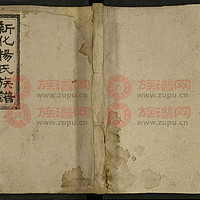 新化楊氏族譜
族谱网
www.zupu.cn
族谱网
www.zupu.cn
族谱网
www.zupu.cn
族谱网
www.zupu.cn